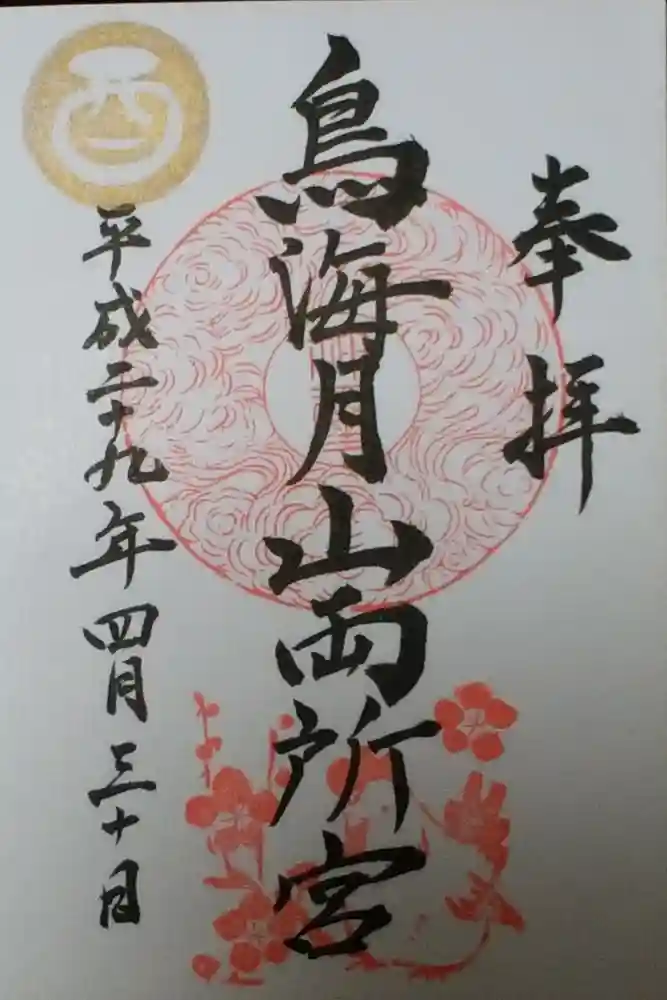 奉拝
鳥海月山両所宮
平成二十九年四月三十日
酉